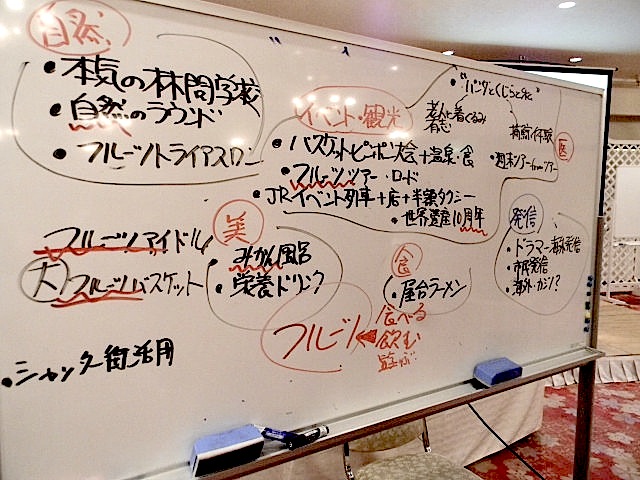 自然
・本気の林間学校
・自然のラウンド
・フルーツトライアスロン
イベント・観光
・バスケットピンポン大会+温泉・食
・フルーツツアー・ロード
・JRイベント列車+店+半額タクシー
・世界遺産10周年
"パンダとくじらと光
着ぐるみ
体験
週末ツアー fromツアー
医
フルーツアイドル
大 フルーツバスケット
美
みかん風呂
・栄養ドリンク
食
・屋台ラーメン
発信
・ドラマー海外発信
・市民発信
・海外・カジノ?
フルーツ
食べる
飲む
遊ぶ
・シャッター街活用